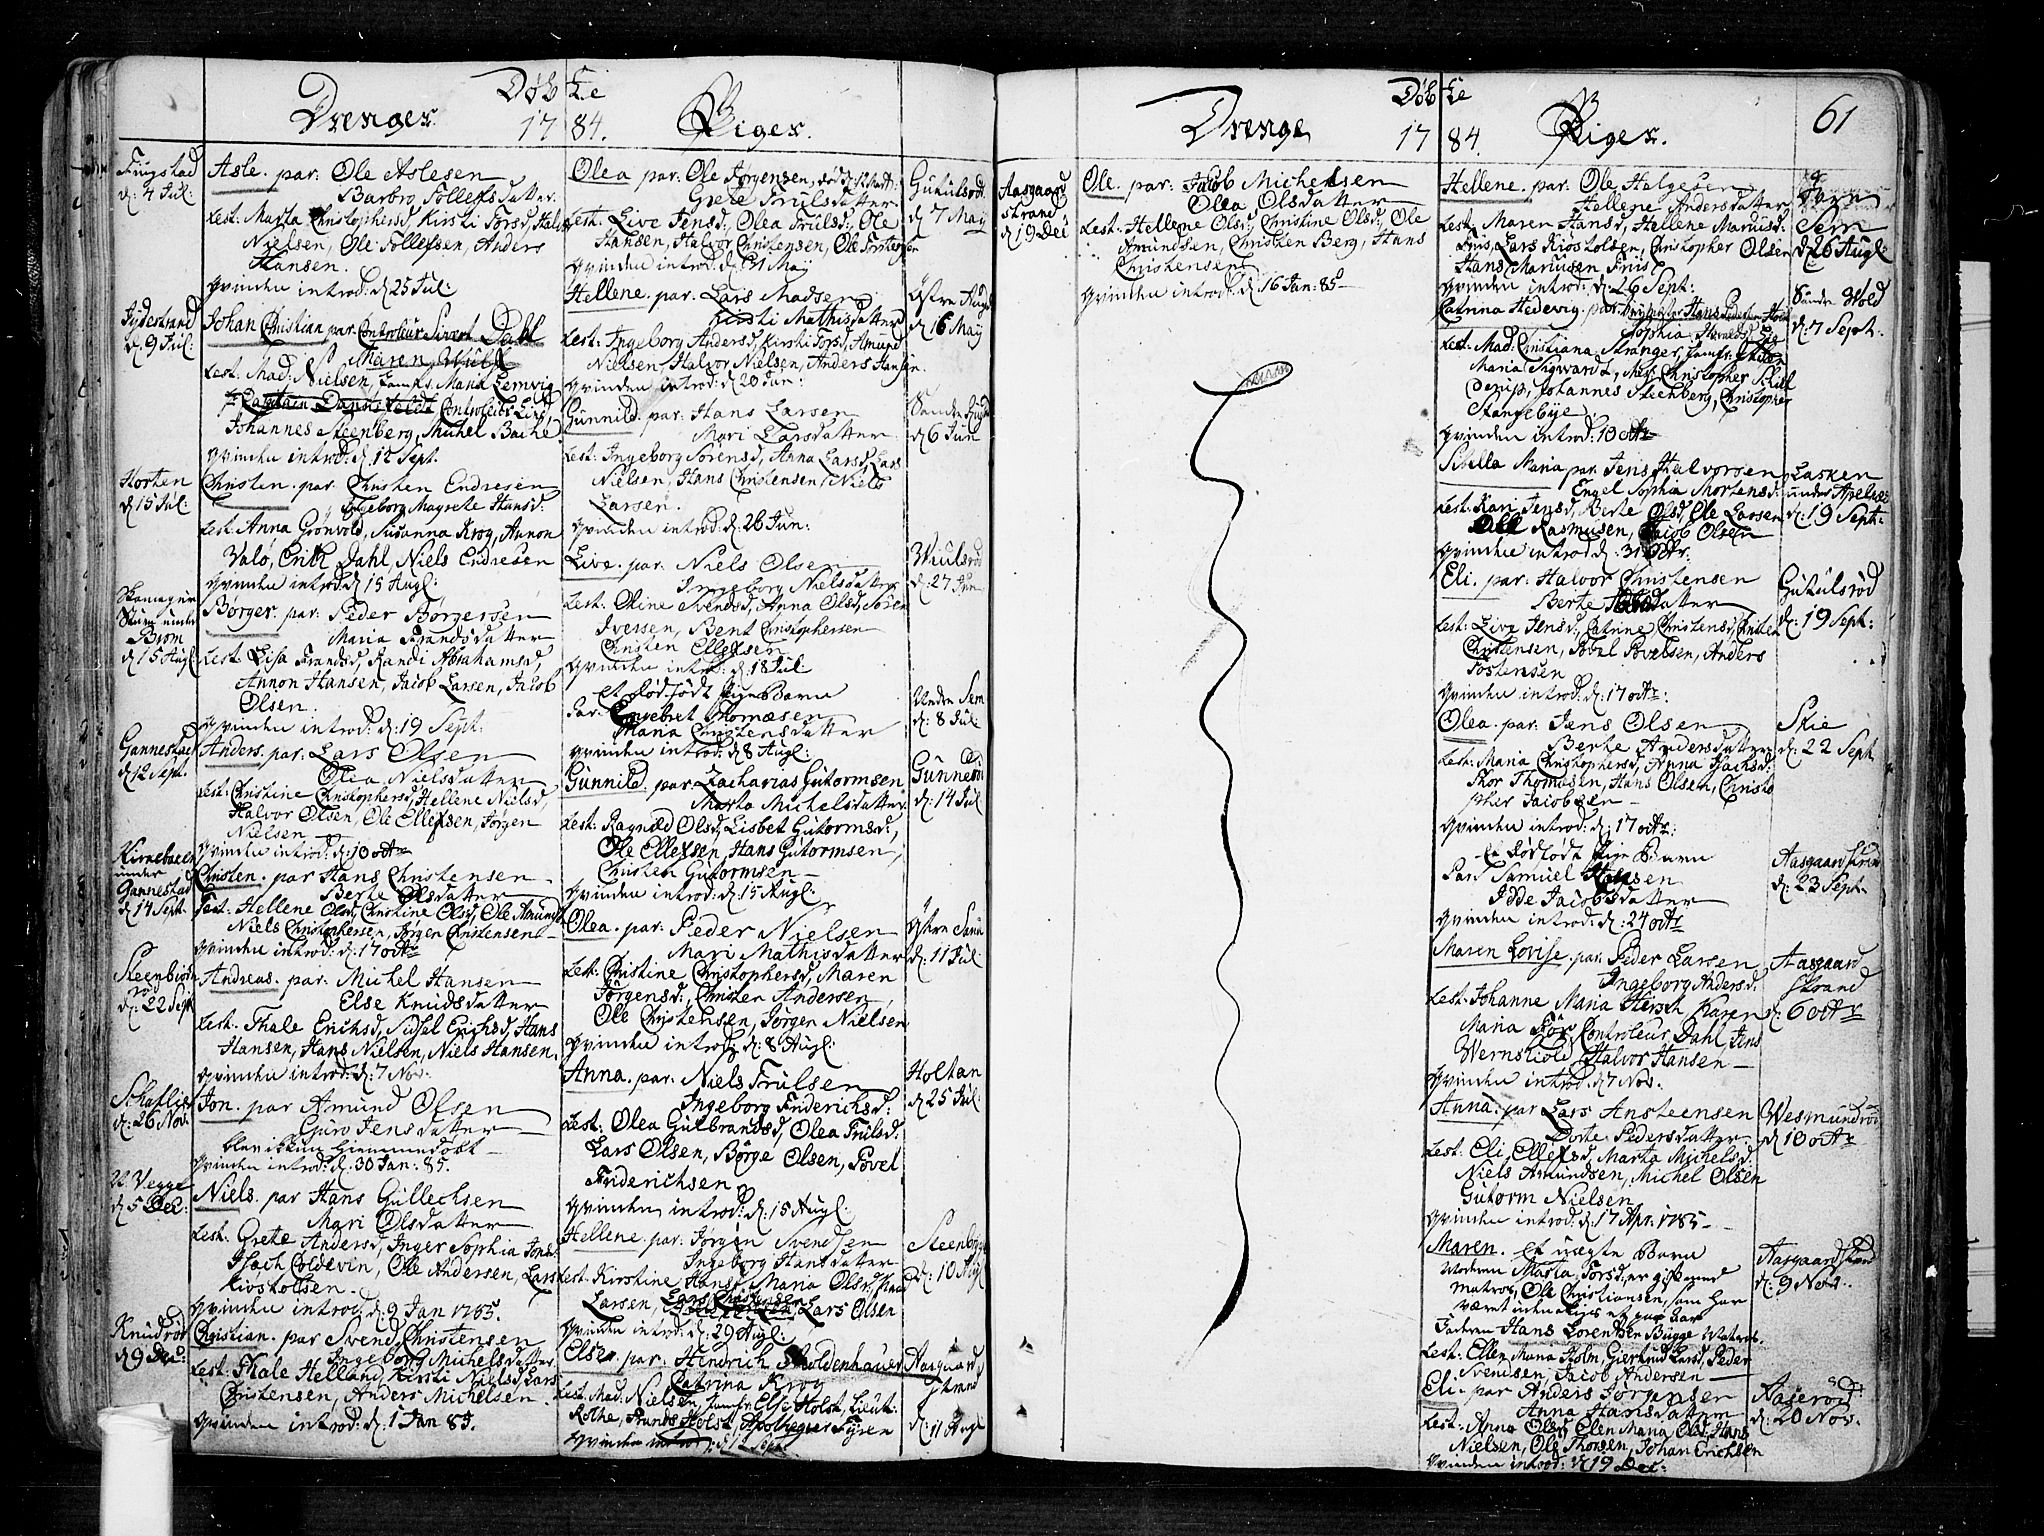 Døbte
Drenger.
1784.
Piger.
Fugstad
d: 4 Jul:
Asle. par: Ole Aslesen
Barbro Tollefsdatter
test: Marta Christophersd, Kirsti Torsd, Halvor
Nielsen, Ole Tollefsen, Anders
Hansen.
qvinden introd: d: 25 Jul:
d: 9 Jul:
Johan Christian par: Controleur Sivert Dahl
Maren
test: Mad: Nielsen, Jomfr: Maria Lemvig
Johannes Steenberg, Michel Bache
qvinden introd: d: 12 Sept.
Horten
d: 15 Jul:
Christen. par: Christen Endresen
Ingeborg Magrete Hansd:
test: Anna Grönvold, Susanna Krog, Annon
Valö, Erik Dahl, Niels Endresen
qvinden introd: d 15 Augl:
under
Brom
d: 15 Augl:
Börger. par: Peder Börgersen
Maria Frandsdatter
test: Lisa Frandsd, Randi Abrahamsd,
Annon Hansen, Jacob Larsen, Jacob
Olsen.
qvinden introd: d: 19 Sept.
Gannestad
d: 12 Sept.
Anders. par: Lars Olsen
Olea Nielsdatter
test: Christine Christophersd, Hellene Nielsd,
Halvor Olsen, Ole Ellefsen, Jörgen
Nielsen
qvinden introd: d: 10 octr
under
Gannestad
d: 14 Sept.
Christen. par Hans Christensen
Berte Olsdatter
Test: Hellene Olsd, Christine Olsd, Ole Amunds
Niels Christophersen, Jörgen Christensen
qvinden introd: d: 17 octr
d: 22 Sept
Andreas. par: Michel Hansen
Else Knudsdatter
test: Thale Erichsd, Sidsel Erichsd, Hans
Hansen, Hans Nielsen, Niels Hansen.
qvinden introd: d: 7 Nov:
d: 26 Nov.
Jon. par Amund Olsen
Guro Jensdatter
blev ikkun hiemmedöbt
qvinden introd: d. 30 Jan: 85.
N Vegge
d: 5 Dec:
Niels. par Hans Gullechsen
Mari Olsdatter
test: Grete Andersd, Inger Sophia Jons
Isach Coldevin, Ole Andersen, Lars
Kiosholsen.
qvinden introd: d: 9 Jan 1785.
Knudrød
d 9 Dec:
Christian. par Svend Christensen
Ingeborg Michelsdatter
test: Thale Helland, Kirsti Nielsd, Lars
Christensen, Anders Michelsen
qvinden introd: d: 1 Jan 85.
Olea par: Ole Jörgensen,
Grete Trulsdatter
test: Live Jensd:, Olea Trulsd:, Ole
Hansen, Halvor Christensen, Ole Torstensen
qvinden introd: d: 31 May
Gutulsrød
d 7 May
Hellene. par: Lars Madsen
Kirsti Mathisdatter
test: Ingeborg Andersd, Kirsti Torsd, Amund
Nielsen, Halvor Nielsen, Anders Hansen.
qvinden introd: d 20 Jun:
d 16 May
Gunnild. par: Hans Larsen
Mari Larsdatter
test: Ingeborg Sörensd, Anna Larsd, Lars
Nielsen, Hans Christensen, Niels
Larsen.
qvinden introd: d: 26 Jun:
d 6 Jun
Live. par: Niels Olsen
Ingeborg Nielsdatter
test: Oline Svendsd, Anna Olsd, Sören
Iversen, Bent Christophersen
Christen Ellefsen
qvinden introd: d. 18 Jul:
d: 27 Jun
et dødfødt Pige Barn
Par: Engebret Thomæsen
Maria Christensdatter
qvinden introd: d 8 Augl:
Sem
d: 8 Jul:
Gunnild. par: Zacharias Gutormsen
Marta Michelsdatter
test: Ragnild Olsd, Lisbet Gutormsd,
Ole Ellefsen, Hans Gutormsen,
Christen Gutormsen
qvinden introd: d: 15 Augl:
d: 14 Jul:
Olea. par: Peder Nielsen
Mari Mathisdatter
test: Christine Christophersd, Maren
Jörgensd:, Christen Andersen,
Ole Christensen, Jörgen Nielsen
qvinden introd: d: 8 Augl:
d: 11 Jul:
Anna. par: Niels Trulsen
Ingeborg Friderichsd:
test: Olea Gulbrandsd, Olea Trulsd:
Lars Olsen, Börge Olsen, Povel
Friderichsen.
qvinden introd: d: 15 Augl:
Holtan
d 25 Jul:
Hellene. par: Jörgen Svendsen
Ingeborg Hansdatter
test: Kirstine Hansd, Maria Olsd,
Larsen, Lars Christensen, Lars Olsen
qvinden introd: d: 29 Augl:
d: 10 Augl
Else. par: Hendrich Moldenhauer
Catrina Krog
test: Mad. Nielsen, Jomfr: Else Holst, Lieut:
Rothe, Frands Holst, Apothequer Fyren
Aasgaard
strand
d: 11 Augl
Døbte
Drenge
1784.
Piger.
61
Aasgaard
strand
d 19 Dec
Ole. par: Jacob Michelsen
Olea Olsdatter
test: Hellene Olsd:, Christine Olsd:, Ole
Amundsen, Christen Berg, Hans
Christensen
qvinden introd: d: 16 Jan: 85
Hellene. par: Ole Halgesen
Hellene Andersdatter
test: Maren Hansd, Hellene Mariusd:
Friis, Lars Kiosholsen, Christopher Olsen
Hans Mariusen Friis
qvinden introd: d: 26 Sept:
Sem
d 26 Augl:
Catrina Hedevig. par:
test: Mad. Christiana Stranger, Jomfr:
Maria Sigwardt, Mr: Christopher Skiel
derup, Johannes Stechberg, Christopher
Stangebye.
qvinden introd: 10 octr
d: 7 Sept.
Sibella Maria par: Jens Halvorsen
Engel Sophia Mortensd:
test: Kari Jensd, Berte Olsd, Ole Larsen
Rasmusen, Jacob Olsen
qvinden introd d: 31 Octr.
Lasken
d: 19 Sept:
Eli. par: Halvor Christensen
Berte
test: Live Jensd:, Catrine Christensd, Christen
Christensen, Povel Povelsen, Anders
Tostensen
qvinden introd: d: 17 octr:
Gutulsrød
d: 19 Sept:
Olea. par: Jens Olsen
Berte Andersdatter
test: Maria Christophersd, Anna Isachsd:
Thor Thomasen, Hans Olsen, Christo
pher Jacobsen
qvinden introd: d: 17 octr:
Skie
d: 22 Sept
et dødfødt Pige Barn
Par: Samuel Hansen
Idde Jacobsdatter
qvinden introd: d: 24 octr
Aasgaardstrand
d: 23 Sept.
Maren Lovise. par: Peder Larsen
Ingeborg Andersd:
test: Johanne Maria Hersch, Karen
Maria Controleur Dahl, Jens
Wernskiold, Halvor Hansen
qvinden introd: d 7 Nov:
Aasgaard
strand
d: 6 octr
Anna. par Lars Ansteensen
Dorte Pedersdatter
test: Eli Ellefsd, Marta Michelsd.
Niels Amundsen, Michel Olsen
Gutorm Nielsen
qvinden introd: d: 17 Apr: 1785
Wesmundrød
d 10 octr
Maren. et uægte Barn
Moderen Marta Torsd, er gift med
Matros, Ole Christiansen, som har
været udenrigs et par Aar
Faderen Hans Lorentzen Bugge Matros.
test: Ellen Maria Holm, Giertrud Larsd, Peder
Svendsen, Jacob Andersen
Aasgaardstrand
d: 9 Nov:
Eli. par Anders Jörgensen
Anna Hansdatter
test: Anna Olsd, Elen Maria Olsd, Hans
Nielsen, Ole Thorsen, Johan Erichsen
qvinden introd: d 19 Dec:
d: 20 Nov.